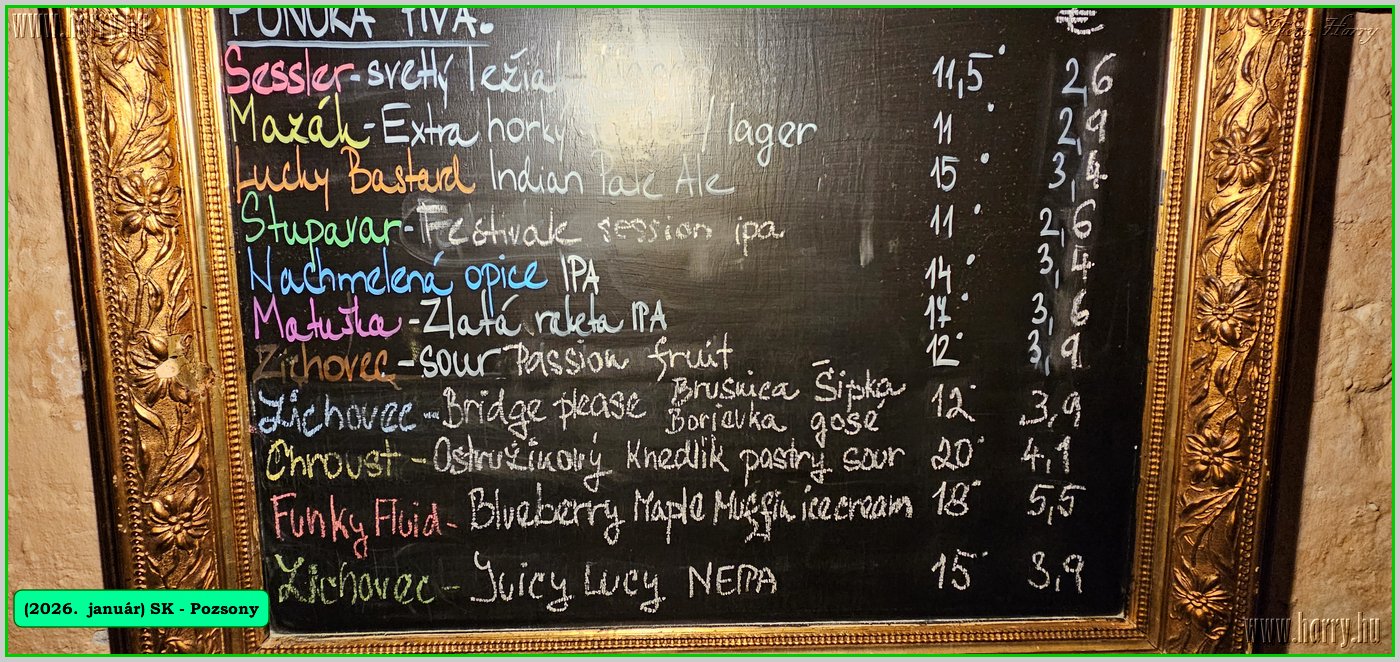 www.horry.hu
PONUKA PIVA. €
Sessler - svetlý ležiak 11,5° 2,6
Mazák - Extra horký / lager 11° 2,9
Lucky Bastard Indian Pale Ale 15° 3,4
Stupavar - Festivak session ipa 11° 2,6
Nachmelená opice IPA 14° 3,4
Matuška - Zlatá raketa IPA 17° 3,6
Zichovec - sour Passion fruit 12° 3,9
Zichovec - Bridge please Brusnica Šípka
Borievka gose 12° 3,9
Chroust - Ostružinový Knedlík pastry sour 20° 4,1
Funky Fluid - Blueberry Maple Muffin icecream 18° 5,5
Zichovec - Juicy Lucy NEIPA 15° 3,9
(2026. január) SK - Pozsony
www.horry.hu